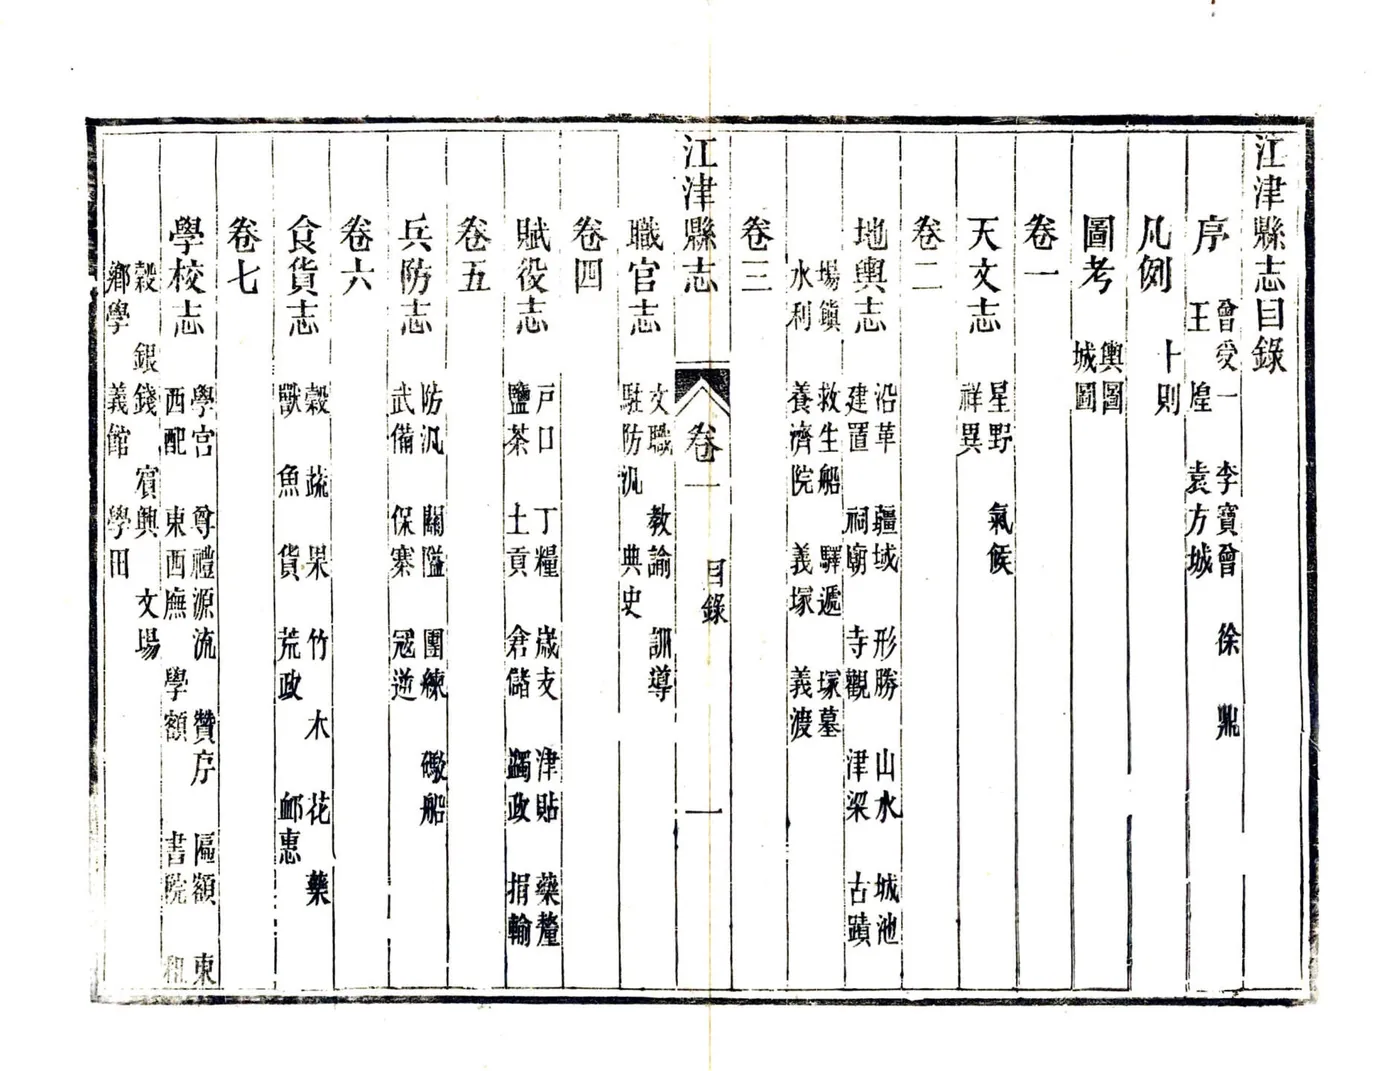 江津縣志目錄
序 曾受一 李寶曾 徐鼎
王煌 袁方城
凡例 十則
圖考 輿圖
城圖
卷一
天文志 星野 氣候
祥異
卷二
地輿志 沿革 疆域 形勝 山水 城池
建置 祠廟 寺觀 津梁 古蹟
場鎮 救生船 驛遞 塚墓
水利 養濟院 義塚 義渡
卷三
江津縣志 卷一 目錄 一
職官志 文職 教諭 訓導
駐防汛 典史
卷四
賦役志 戸口 丁糧 歲支 津貼 藥釐
鹽茶 土貢 倉儲 蠲政 捐輸
卷五
兵防志 防汛 關隘 團練 礮船
武備 保寨 冦逆
卷六
食貨志 穀 蔬 果 竹 木 花 藥
獸 魚 貨 荒政 䘏惠
卷七
學校志 學宮 尊禮源流 贊序 匾額 東
西配 東西廡 學額 書院 租
穀 銀錢 賓興 文場
鄉學 義館 學田